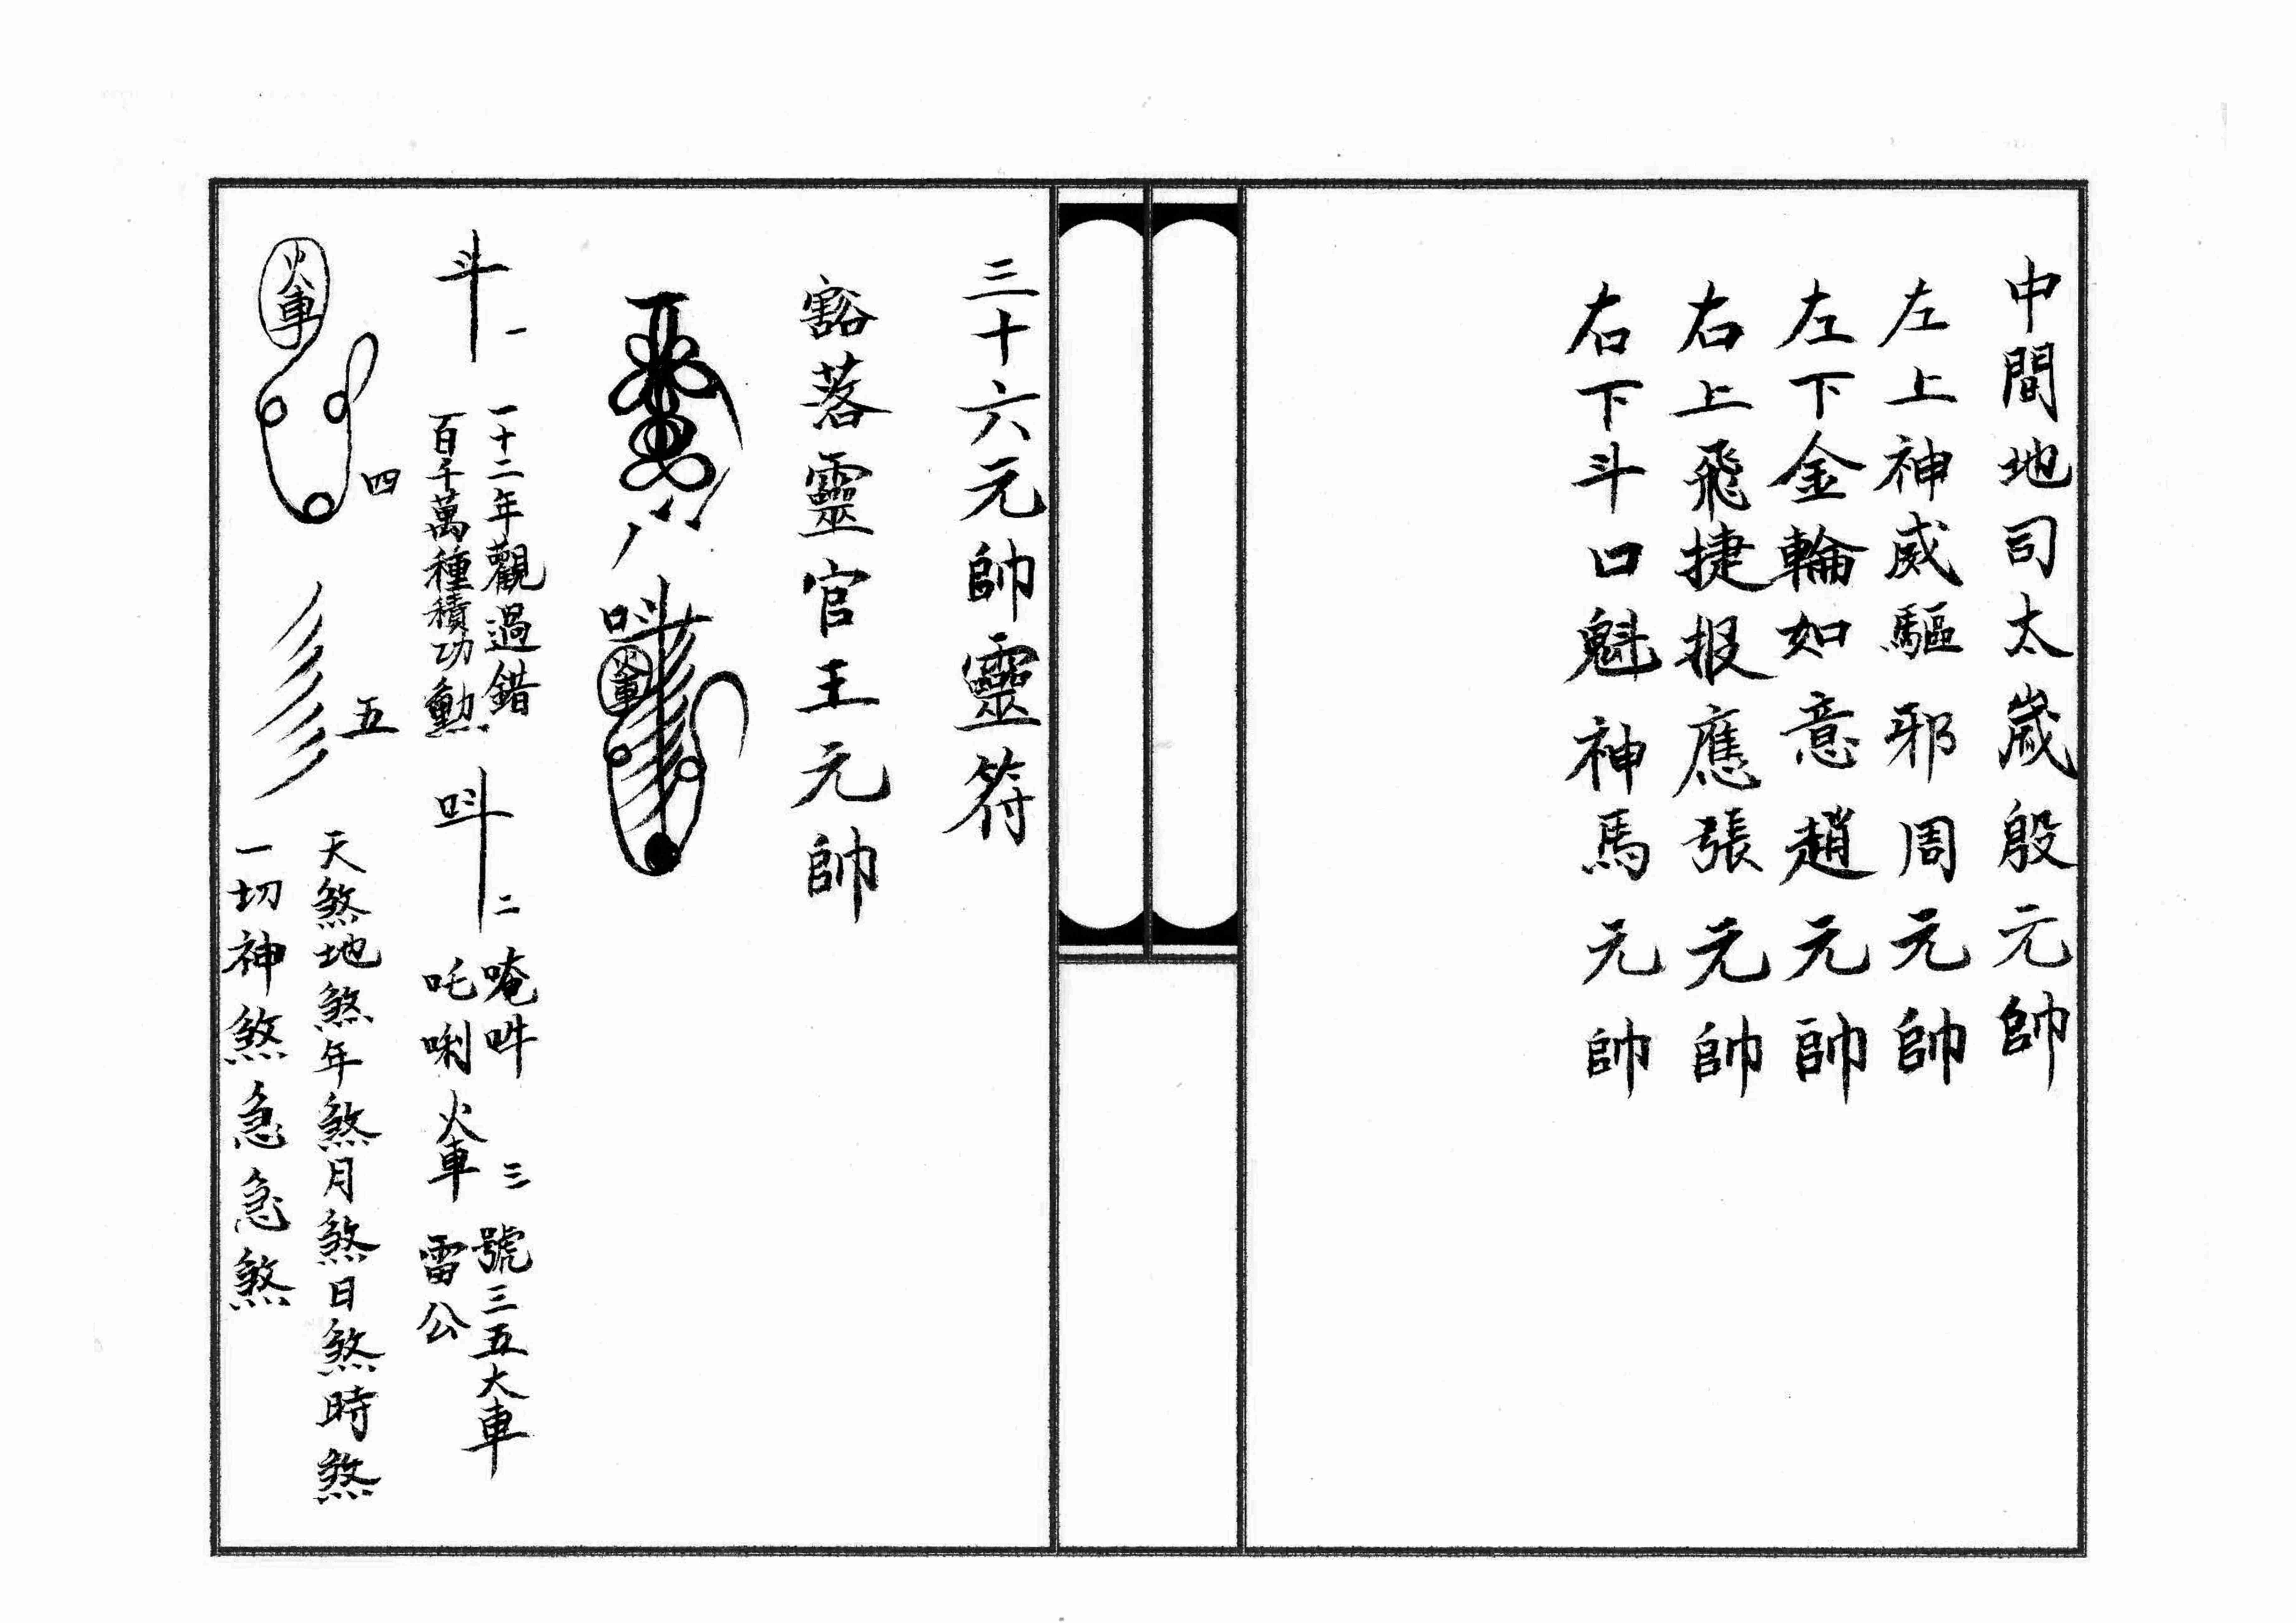 中間地司太歲殷元帥
左上神威驅邪周元帥
左下金輪如意趙元帥
右上飛捷报應張元帥
右下斗口魁神馬元帥
三十六元帥靈符
豁落靈官王元帥
㕤
火車
斗 一
一十二年觀過錯
百千萬種積功勳
㕤 二
唵吽
吒唎
火車 三
號三五大車
雷公
火車
四
五
天煞地煞年煞月煞日煞時煞
一切神煞急急煞